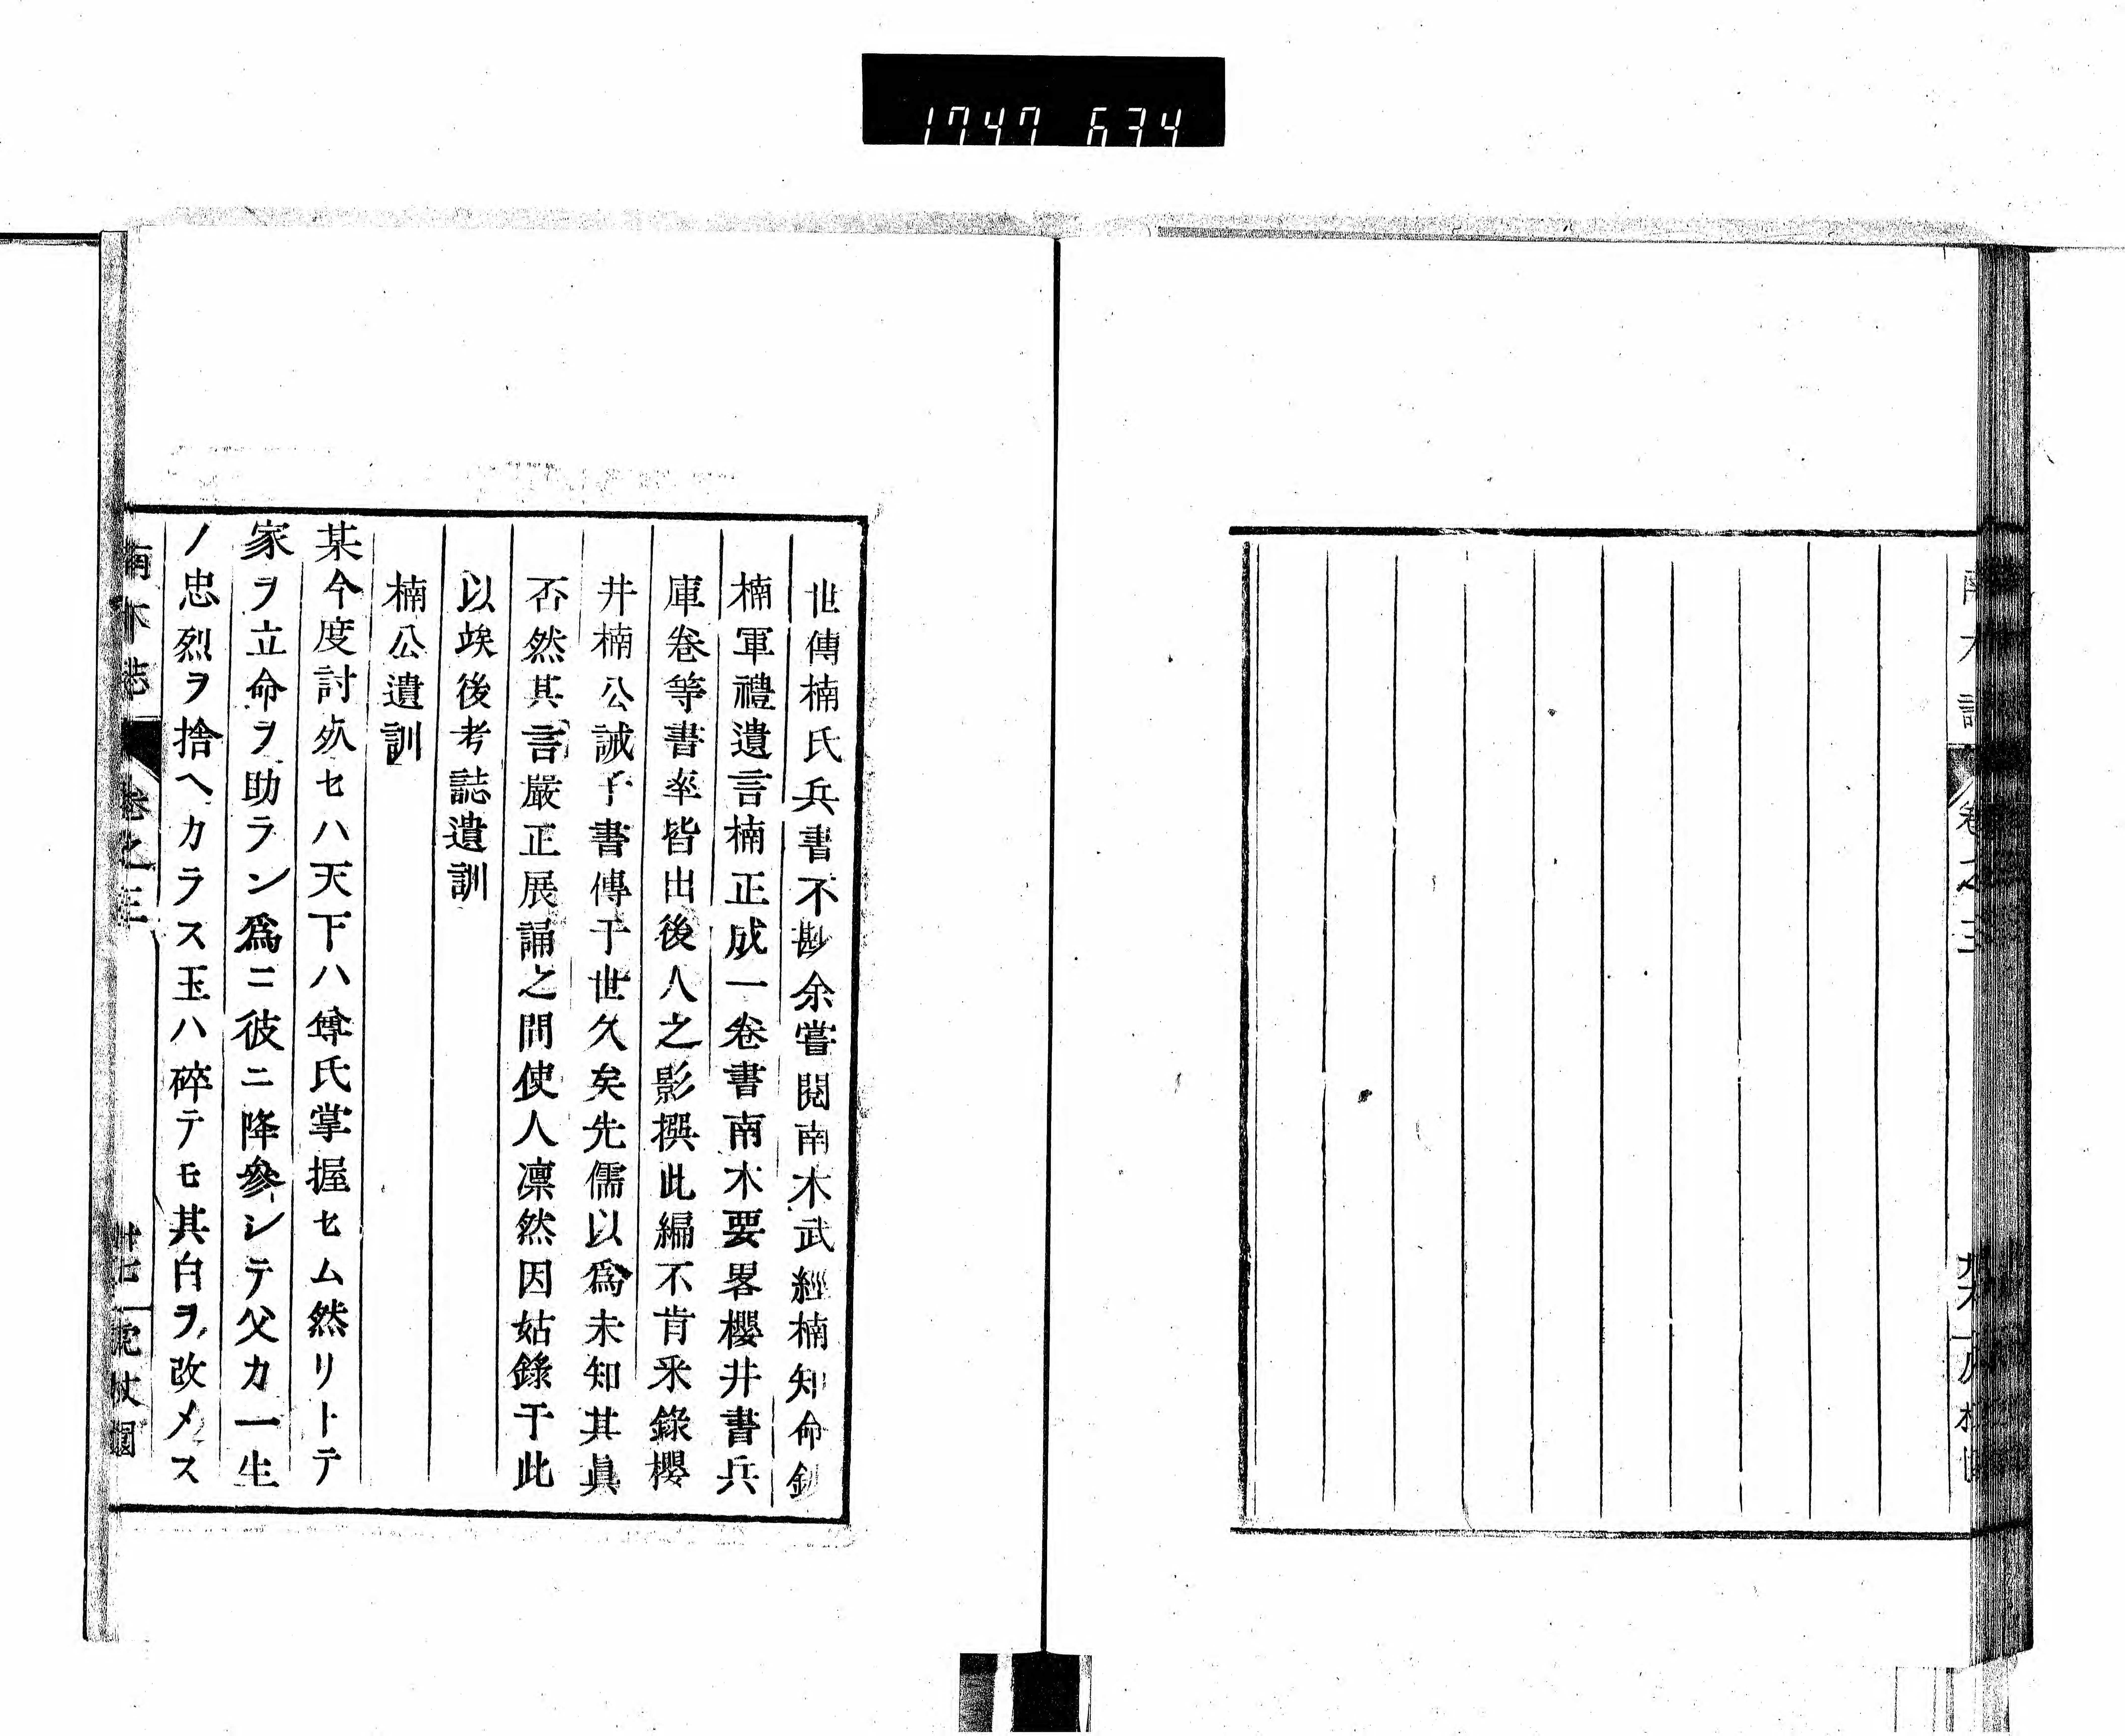 1747 634
南木誌
卷之三
世傳楠氏兵書不尠余嘗閲南木武經楠知命鈔
楠軍禮遺言楠正成一卷書南木要畧櫻井書兵
庫卷等書率皆出後人之影撰此編不肯采錄櫻
井楠公誡子書傳于世久矣先儒以爲未知其眞
否然其言嚴正展誦之間使人凛然因姑錄于此
以竢後考誌遺訓
楠公遺訓
某今度討死セハ天下ハ尊氏掌握セム然リトテ
家ヲ立命ヲ助ラン爲ニ彼ニ降參シテ父カ一生
ノ忠烈ヲ捨ヘカラス玉ハ碎テモ其白ヲ改メス
南木誌
卷之三
卅七